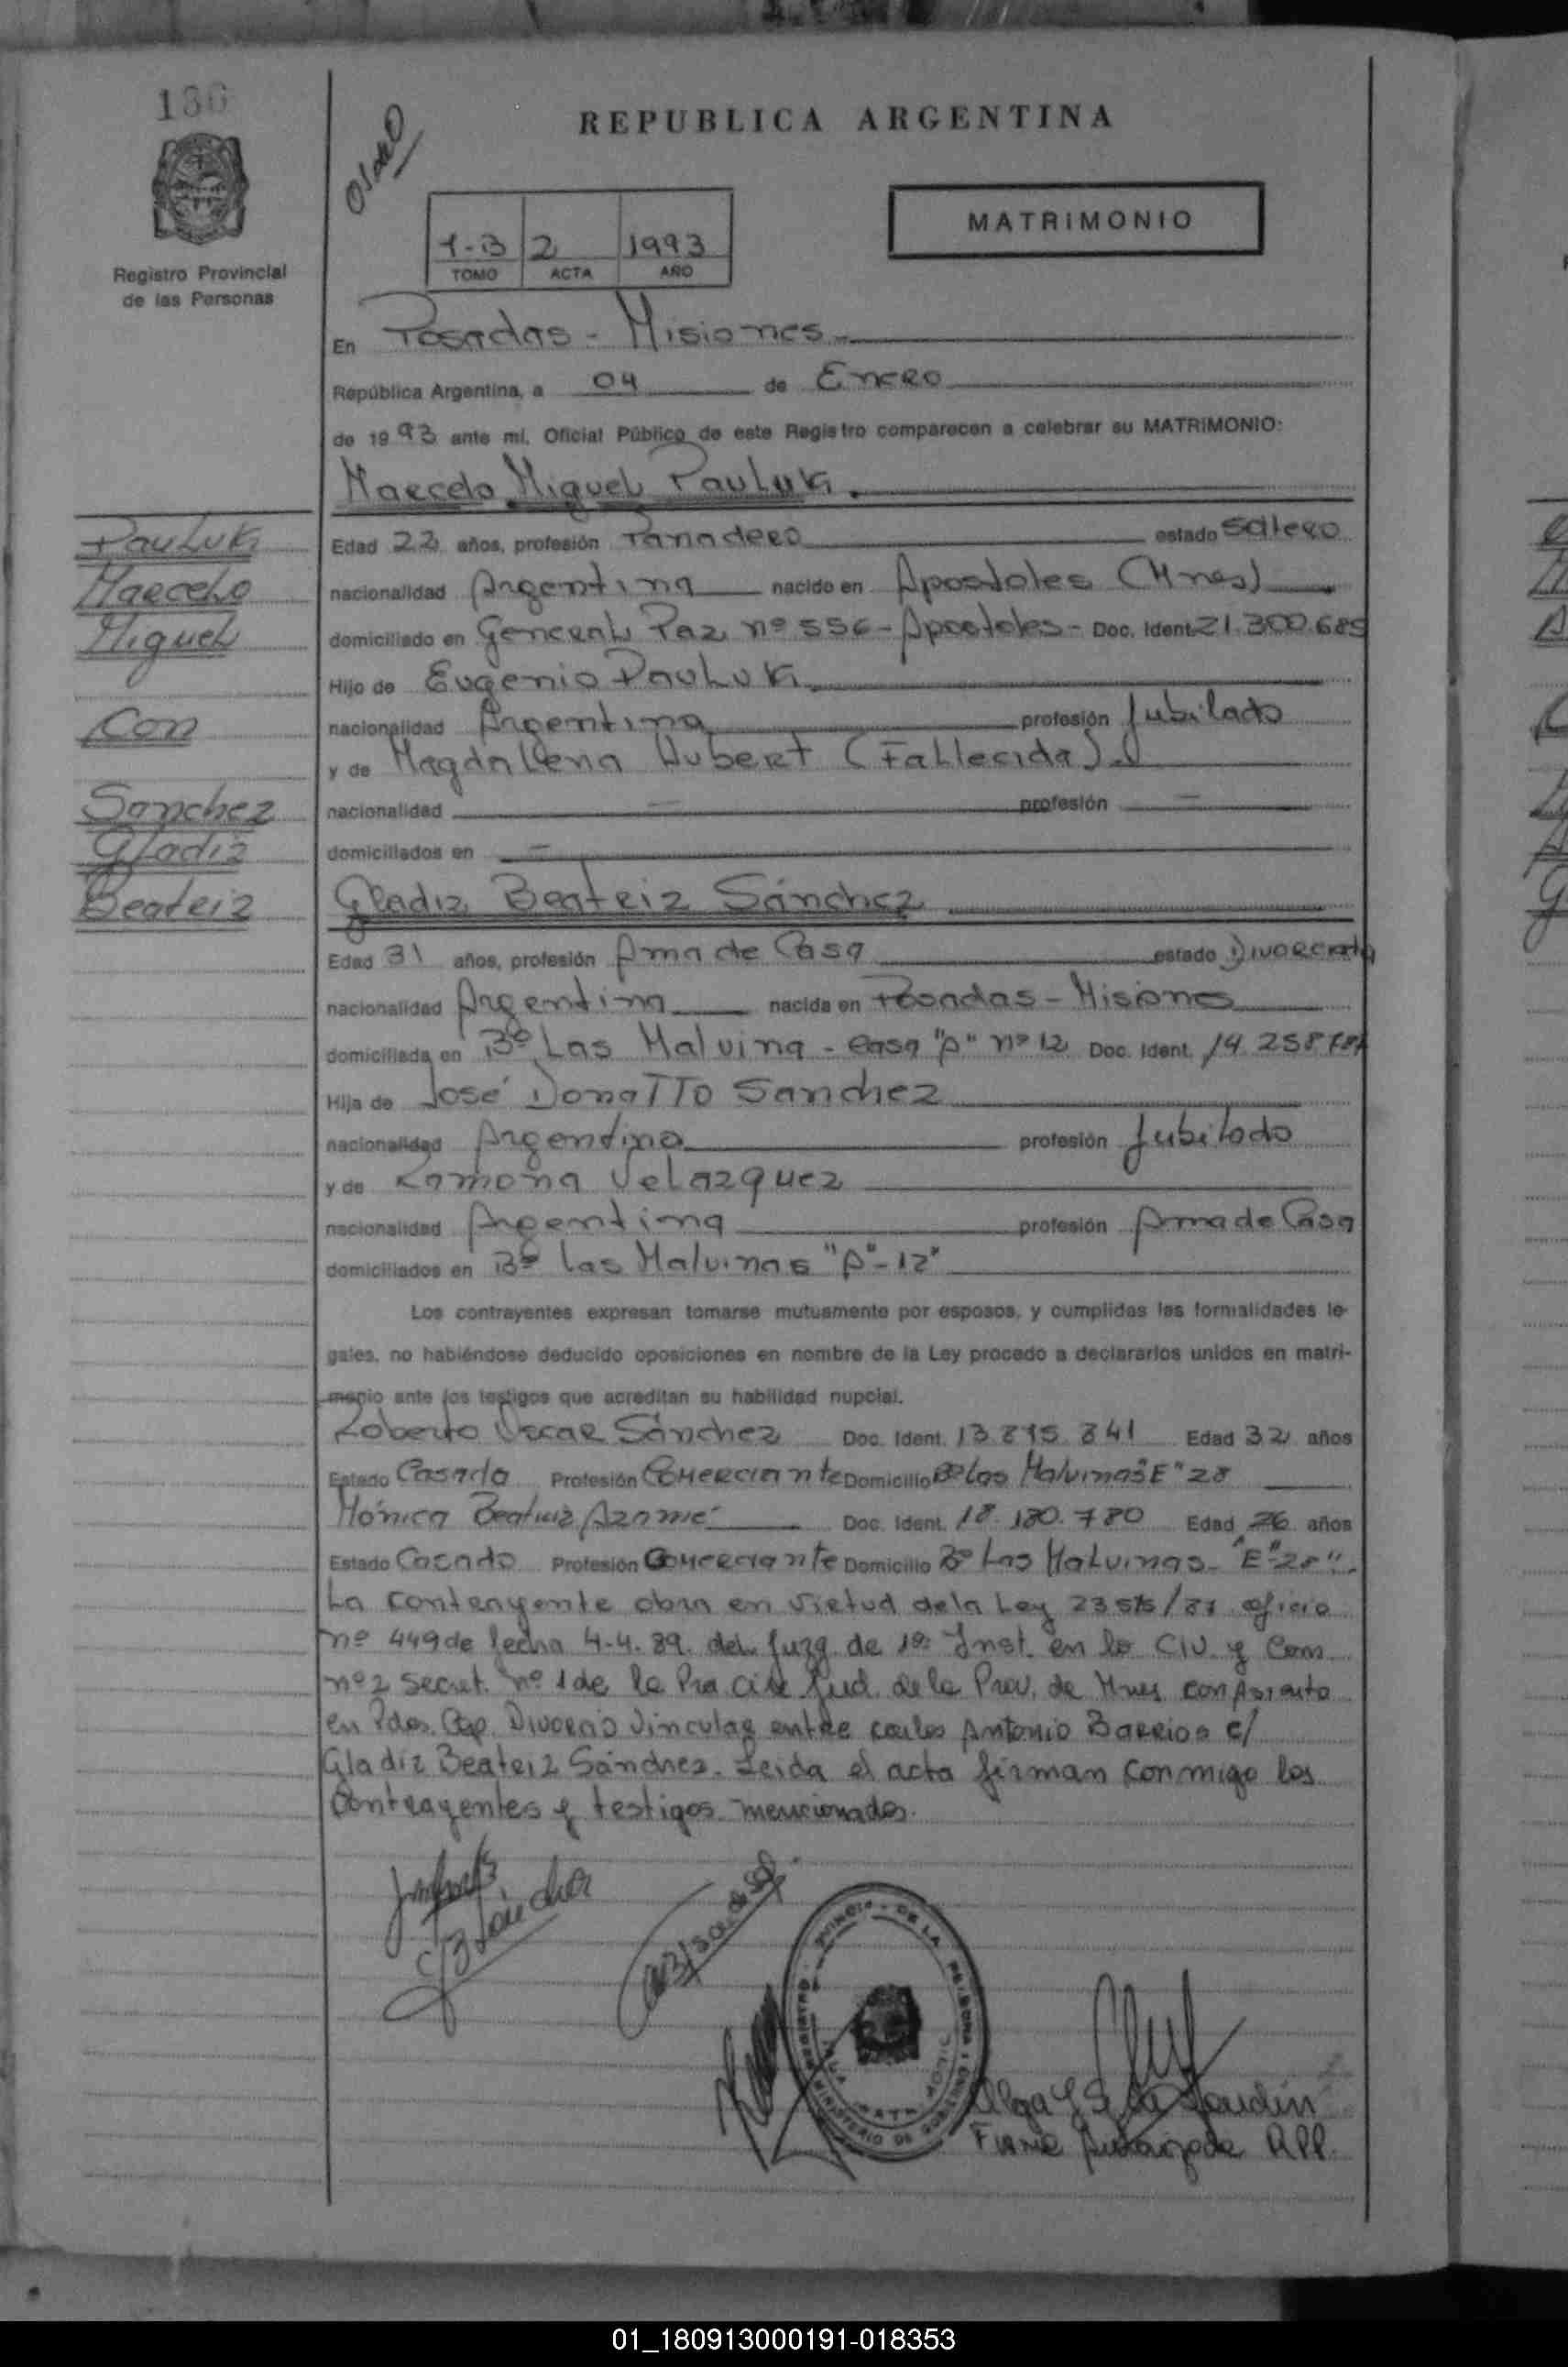 136
REPUBLICA ARGENTINA
MATRIMONIO
1-B 2 1993
TOMO ACTA AÑO
Registro Provincial
de las Personas
En Posadas - Misiones
República Argentina, a 04 de Enero
de 1993 ante mí, Oficial Público de este Registro comparecen a celebrar su MATRIMONIO:
Marcelo Miguel Pauluk
Pauluk
Marcelo
Miguel
Con
Sanchez
Gladiz
Beatriz
Edad 22 años, profesión Panadero estado soltero
nacionalidad Argentina nacido en Apostoles (Mnes)
domiciliado en General Paz nº 556 - Apostoles - Doc. Ident. 21.300.685
Hijo de Eugenio Pauluk
nacionalidad Argentina profesión Jubilado
y de Magdallena Hubert (Fallecida).
nacionalidad — profesión —
domiciliados en —
Gladiz Beatriz Sánchez
Edad 31 años, profesión Ama de Casa estado Divorciada
nacionalidad Argentina nacida en Posadas - Misiones
domiciliada en Bº Las Malvina - casa "A" nº 12 Doc. Ident. 14.258.
Hija de José Donatto Sanchez
nacionalidad Argentina profesión Jubilado
y de Ramona Velazquez
nacionalidad Argentina profesión Ama de Casa
domiciliados en Bº Las Malvinas "A"-12"
Los contrayentes expresan tomarse mutuamente por esposos, y cumplidas las formalidades le-
gales, no habiéndose deducido oposiciones en nombre de la Ley procedo a declararlos unidos en matri-
monio ante los testigos que acreditan su habilidad nupcial.
Roberto Oscar Sánchez Doc. Ident. 13.815.841 Edad 32 años
Estado Casado Profesión Comerciante Domicilio Bº Las Malvinas "E" 28
Mónica Beatriz Doc. Ident. 18.180.780 Edad 26 años
Estado Casado Profesión Comerciante Domicilio Bº Las Malvinas - "E"-28".
La contrayente obra en virtud de la Ley 23515/87 oficio
nº 449 de fecha 4-4-89. del Juzg. de 1º Inst. en lo Civ. y Com.
nº 2 Secret. nº 1 de la Pra. Jud. de la Prov. de Mnes con Asiento
en Pdas. Cap. Divorcio Vincular entre Carlos Antonio Barrios c/
Gladiz Beatriz Sánchez. Leida el acta firman conmigo los
Contrayentes y testigos mencionados.
Firma Autorizada RPP.
01_180913000191-018353